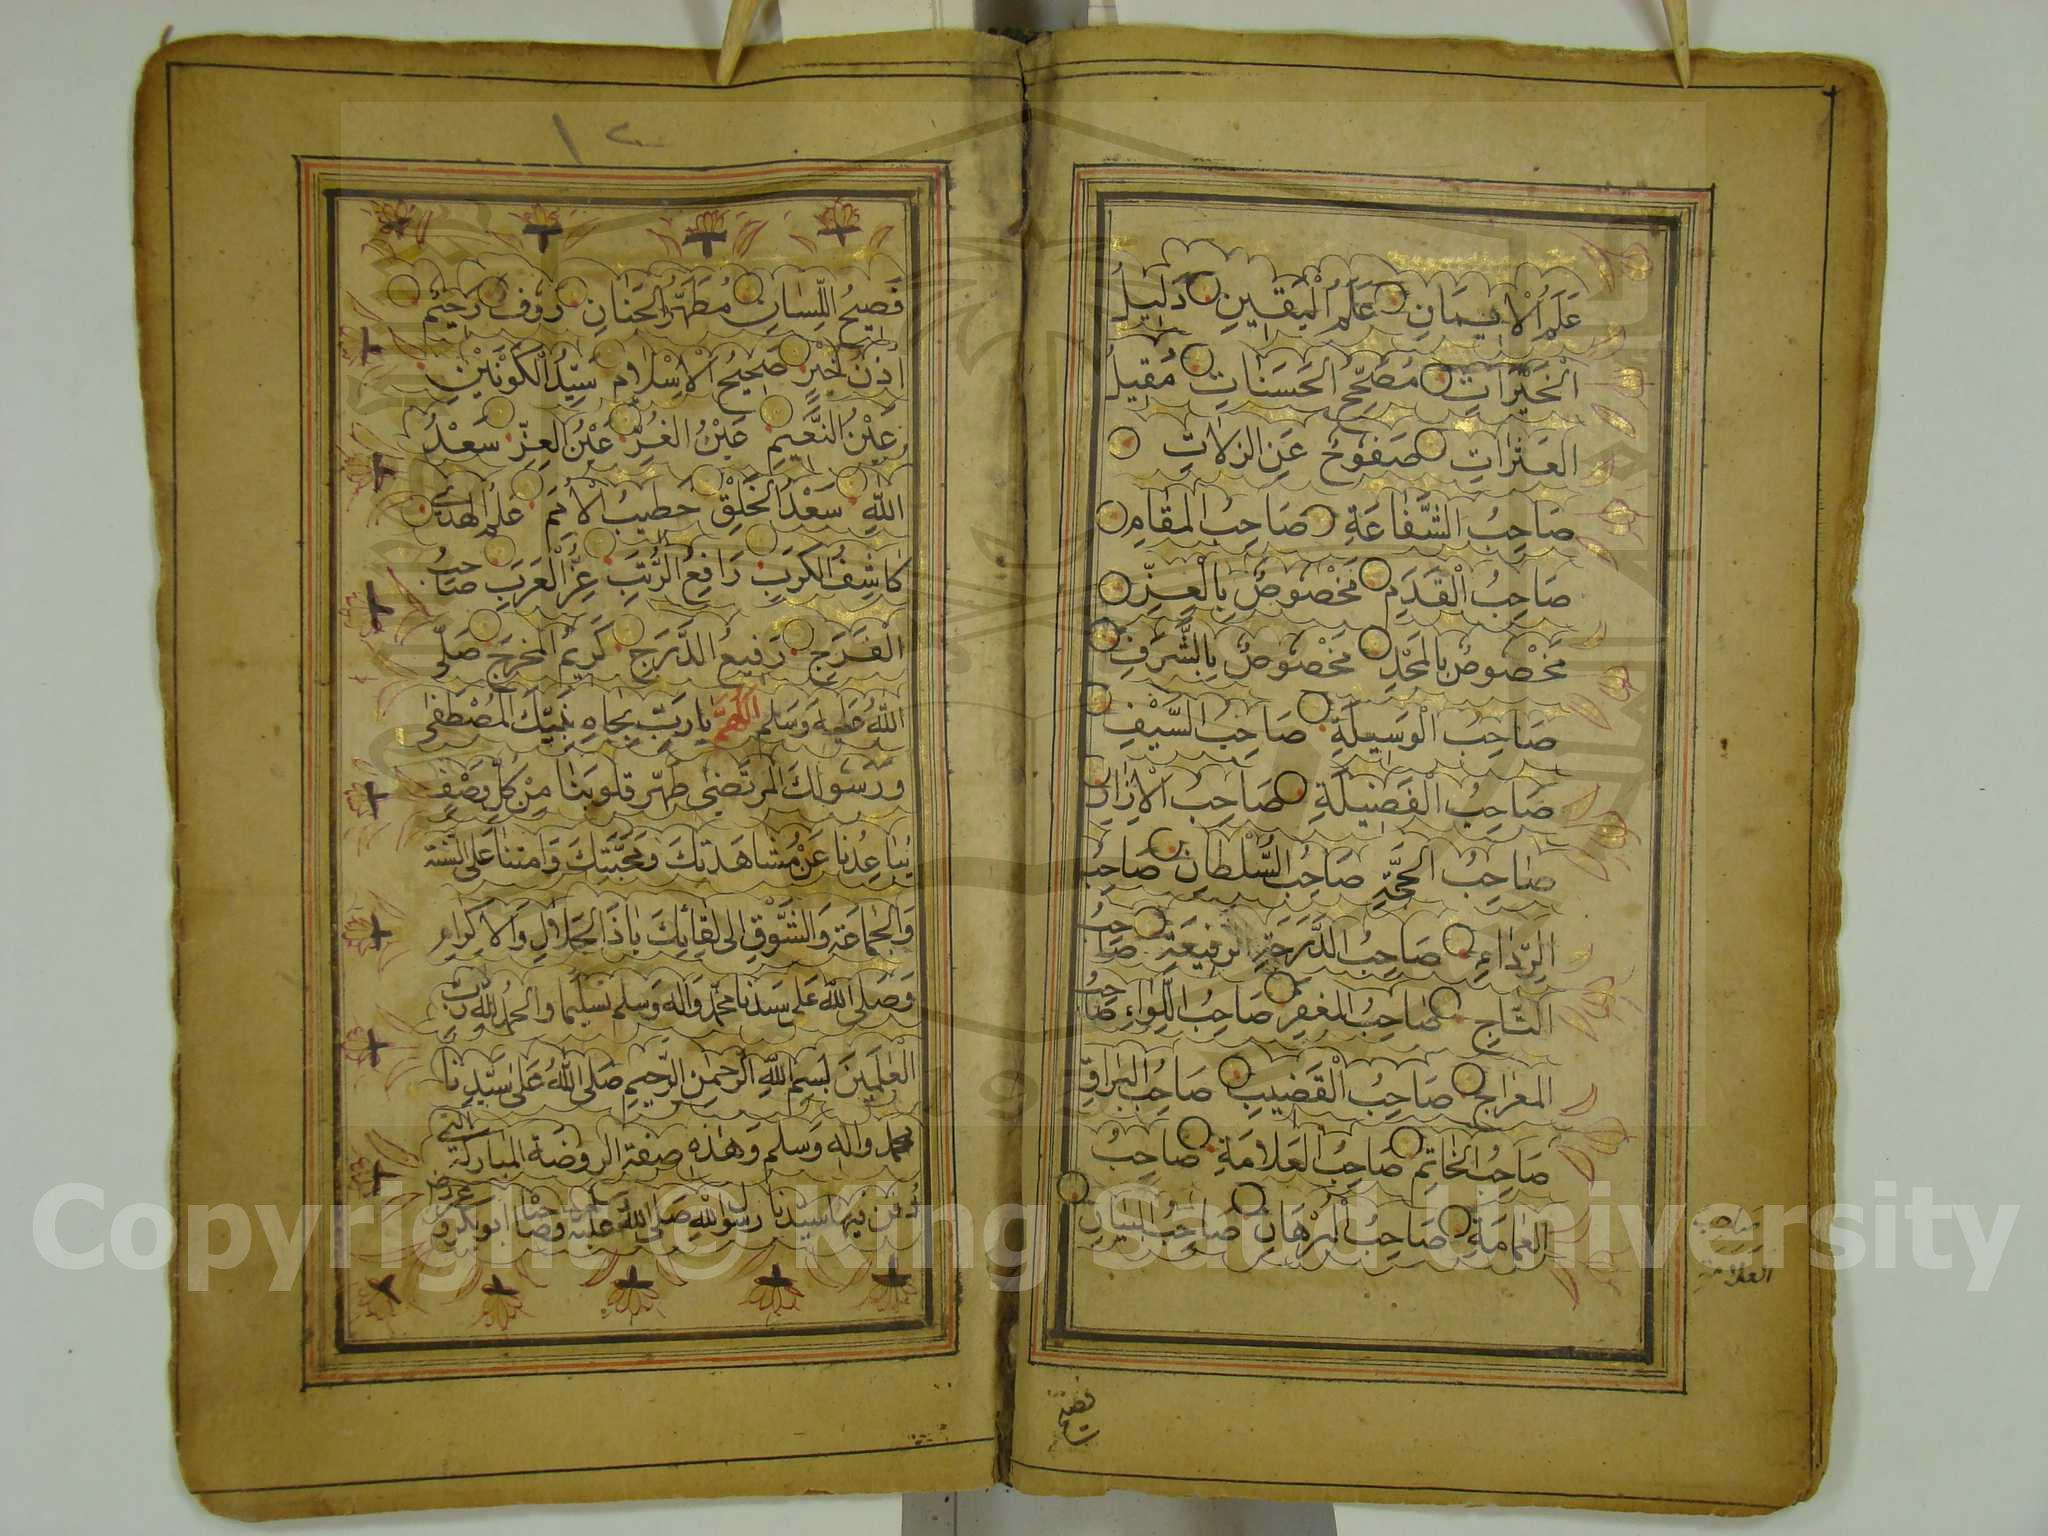 عَلَمُ الْاِيمَانِ عَلَمُ الْيَقِينِ دَلِيلُ
الْخَيْرَاتِ مُصَحِّحُ الْحَسَنَاتِ مُقِيلُ
العَثَرَاتِ صَفُوحٌ عَنِ الزلَاتِ
صَاحِبُ الشَّفَاعَةِ صَاحِبُ الْمَقَامِ
صَاحِبُ الْقَدَمِ مَخْصُوصٌ بِالْعِزِّ
مَخْصُوصٌ بِالمَجْدِ مَخْصُوصٌ بِالشَّرَفِ
صَاحِبُ الْوَسِيلَةِ صَاحِبُ السَّيْفِ
صَاحِبُ الْفَضِيلَةِ صَاحِبُ الْاِزَارِ
صَاحِبُ الحُجَّةِ صَاحِبُ السُّلْطَانِ صَاحِبُ
الرِّدَاءِ صَاحِبُ الدَّرَجَةِ الرَفِيعَةِ صَاحِبُ
التَّاجِ صَاحِبُ المغفِرِ صَاحِبُ اللِّوَاءِ صَاحِبُ
المعرَاجِ صَاحِبُ الْقَضِيبِ صَاحِبُ البُرَاقِ
صَاحِبُ الْخَاتِمِ صَاحِبُ العَلَامَةِ صَاحِبُ
العلامَةِ صَاحِبُ الْبُرْهَانِ صَاحِبُ البَيَانِ
صاحب
العلامة
فصيح
١٢
فَصِيحُ اللِّسَانِ مُطَهَّرُ الجَنَانِ رَؤُفٌ رَحِيمٌ
اُذُنُ خَيْرٍ صَحِيحُ الْاِسْلَامِ سَيِّدُ الْكَوْنَيْنِ
عَيْنُ النَّعِيمِ عَيْنُ الغُرِّ عَيْنُ العِزِّ سَعْدُ
اللّٰهِ سَعْدُ الْخَلْقِ خَطِيبُ الْاُمَمِ عَلَمُ الهُدَى
كَاشِفُ الكُرَبِ رَافِعُ الرُّتَبِ عِزُّ الْعَرَبِ صَاحِبُ
الْفَرَجِ رَفِيعُ الدَّرَجِ كَرِيمُ المخرَجِ صَلَّى
اللّٰهُ عَلَيْهِ وَسَلم اَللّٰهُمَّ يارَبِّ بِجاهِ نَبِيِّكَ المُصْطَفٰى
وَرَسُولِكَ المُرتَضٰى طَهِّر قلوبَنَا مِنْ كلِّ وَصْفٍ
يُبَاعِدُنا عَنْ مُشَاهَدتِكَ وَمَحَبَّتِكَ وَامتنا عَلى السُّنَّة
وَالجَمَاعَةِ وَالشَّوْقِ الى لِقَائِكَ يا ذَا الجَلَالِ وَالْاِكرَامِ
وَصَلى اللّٰه عَلى سيدنا محمّد وَاٰله وَسَلم تَسْلِيمًا والحمدُ للّٰه رَبِّ
الْعٰلَمِينَ بِسمِ اللّٰهِ الرَّحمٰنِ الرَّحِيمِ صَلى اللّٰهُ عَلٰى سَيِّدِنَا
محمد واٰله وَسَلم وَهٰذهِ صفة الروضَة المباركة التي
دُفن فيها سيدنا رسول اللّٰه صَلى اللّٰه عَليه وَصَاحباه ابو بكر و
Copyright © King Saud University
1957